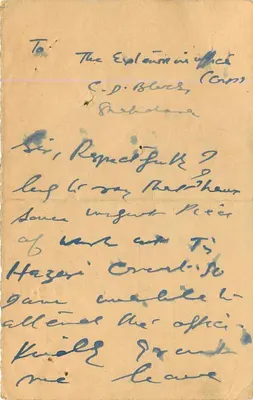 To
The Extension officer
(Coop)
C. D. Block,
Sir, Respectfully I
beg to say that I have
some urgent Piece
of work at Tis
Hazari Court. So
I am unable to
attend the office.
Kindly grant
me leave